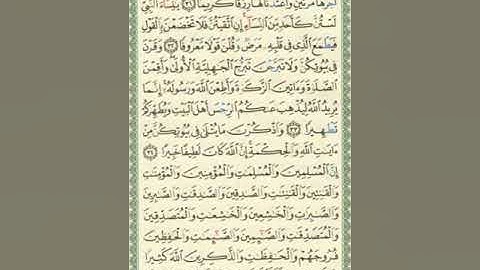 أَجْرَهَا مَرَّتَيْنِ وَأَعْتَدْنَا لَهَا رِزْقًا كَرِيمًا ٣١ يَٰنِسَآءَ ٱلنَّبِيِّ
لَسْتُنَّ كَأَحَدٍ مِّنَ ٱلنِّسَآءِ إِنِ ٱتَّقَيْتُنَّ فَلَا تَخْضَعْنَ بِٱلْقَوْلِ
فَيَطْمَعَ ٱلَّذِى فِى قَلْبِهِۦ مَرَضٌ وَقُلْنَ قَوْلًا مَّعْرُوفًا ٣٢ وَقَرْنَ
فِى بُيُوتِكُنَّ وَلَا تَبَرَّجْنَ تَبَرُّجَ ٱلْجَٰهِلِيَّةِ ٱلْأُولَىٰ وَأَقِمْنَ
ٱلصَّلَوٰةَ وَءَاتِينَ ٱلزَّكَوٰةَ وَأَطِعْنَ ٱللَّهَ وَرَسُولَهُۥٓ إِنَّمَا
يُرِيدُ ٱللَّهُ لِيُذْهِبَ عَنكُمُ ٱلرِّجْسَ أَهْلَ ٱلْبَيْتِ وَيُطَهِّرَكُمْ
تَطْهِيرًا ٣٣ وَٱذْكُرْنَ مَا يُتْلَىٰ فِى بُيُوتِكُنَّ مِنْ
ءَايَٰتِ ٱللَّهِ وَٱلْحِكْمَةِ إِنَّ ٱللَّهَ كَانَ لَطِيفًا خَبِيرًا ٣٤
إِنَّ ٱلْمُسْلِمِينَ وَٱلْمُسْلِمَٰتِ وَٱلْمُؤْمِنِينَ وَٱلْمُؤْمِنَٰتِ
وَٱلْقَٰنِتِينَ وَٱلْقَٰنِتَٰتِ وَٱلصَّٰدِقِينَ وَٱلصَّٰدِقَٰتِ وَٱلصَّٰبِرِينَ
وَٱلصَّٰبِرَٰتِ وَٱلْخَٰشِعِينَ وَٱلْخَٰشِعَٰتِ وَٱلْمُتَصَدِّقِينَ
وَٱلْمُتَصَدِّقَٰتِ وَٱلصَّٰٓئِمِينَ وَٱلصَّٰٓئِمَٰتِ وَٱلْحَٰفِظِينَ
فُرُوجَهُمْ وَٱلْحَٰفِظَٰتِ وَٱلذَّٰكِرِينَ ٱللَّهَ كَثِيرًا